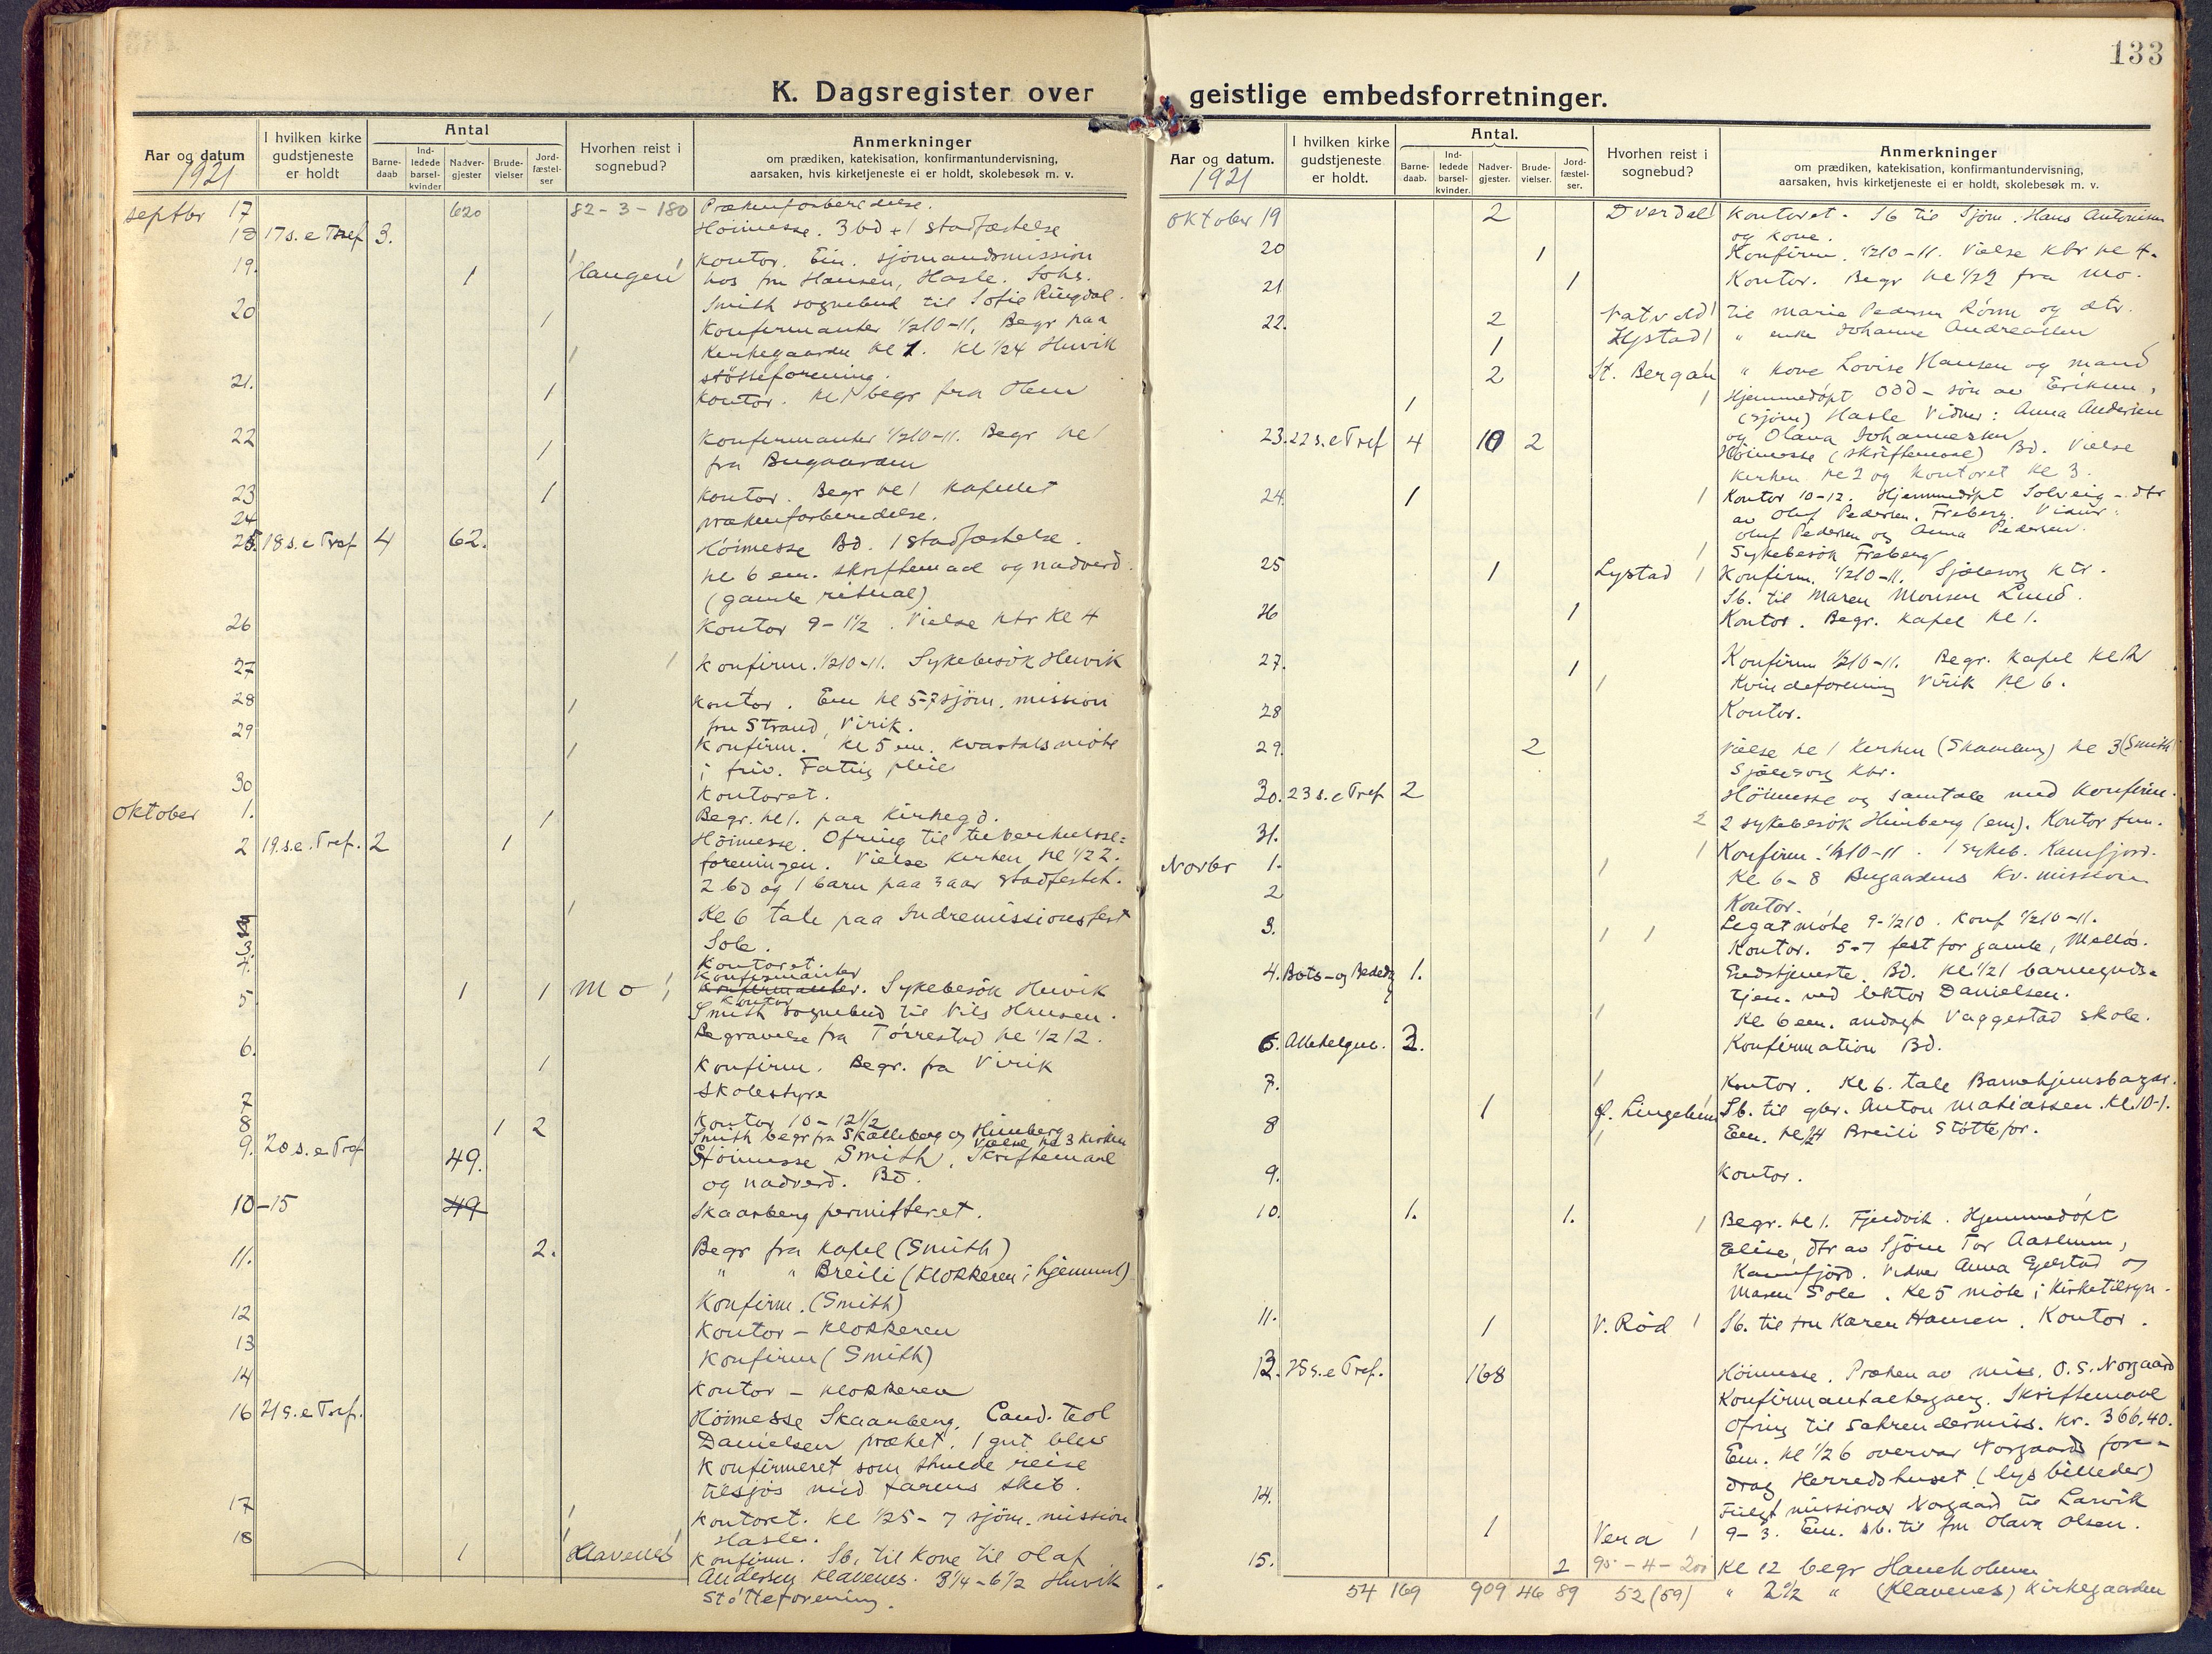 133
K. Dagsregister over geistlige embedsforretninger.
Aar og datum
1921
I hvilken kirke gudstjeneste er holdt
Antal
Barne-daab
Ind-ledede barsel-kvinder
Nadver-gjester
Brude-vielser
Jord-fæstel-ser
Hvorhen reist i sognebud?
Anmerkninger
om prædiken, katekisation, konfirmantundervisning,
aarsaken, hvis kirketjeneste ei er holdt, skolebesøk m. v.
septbr 17 620 82-3-180 Prækenforberedelse.
18 17 s. e Tref 3. Höimesse. 3 bd + 1 stadfæstelse
19. 1 Haugen Kontor. Em. sjömandsmission
hos fru Hansen, Hasle. Johs.
Smith sognebud til Sofie Ringdal.
20 1 Konfirmanter 1/2 10-11. Begr paa
Kirkegaarden kl 1. kl 1/2 4 Huvik
støtteforening.
21. 1 Kontor. kl 1 begr fra Hem
22 1 Konfirmanter 1/2 10-11. Begr kl 1
fra Bugaarden
23 1 Kontor. Begr kl 1 Kapellet
24 Prækenforberedelse.
25. 18 s. e Tref 4 62. Höimesse Bd. 1 stadfæstelse.
kl 6 em. skriftemaal og nadverd.
(gamle ritual)
26 Kontor 9-1 1/2. Vielse ktr kl 4
27 1 Konfirm. 1/2 10-11. Sykebesök Huvik
28 1 Kontor. Em kl 5-7 sjöm. mission
fru Strand, Virik.
29 1 Konfirm. kl 5 em. kvartalsmöte
i friv. Fattig pleie
30 Kontoret.
Oktober 1. 1 Begr. kl 1. paa Kirkegd.
2 19. s. e. Tref. 2 1 Höimesse. Ofring til tuberkulose=
foreningen. Vielse kirken kl 1/2 2.
2 bd og 1 barn paa 3 aar stadfestet.
1 Kl 6 tale paa Indremissionsfest
Sole.
3. Kontoret.
4. Konfirmanter
5 1 1 Mo 1 Konfirmanter. Sykebesök Huvik
Kontor
Smith sognebud til Nils Hansen.
Begravelse fra Törrestad kl 1/2 12.
6. 1 Konfirm. Begr. fra Virik
Skolestyre
7 Kontor 10-12 1/2
8 1 2 Smith begr fra Skalleberg og Himberg Vielse kl 3 Kirken
9. 20 s. e Tref 49. Höimesse Smith. Skriftemaal
og nadverd. Bd.
10-15 49 Skaarberg permitteret.
11. 2. Begr fra Kapel (Smith)
" " Breili (Klokkeren i hjemmet)
12 Konfirm. (Smith)
13 Kontor - Klokkeren
14 Konfirm (Smith)
Kontor - Klokkeren
16 21 s. e Tref. Höimesse Skaarberg. Cand. teol
Danielsen præket. 1 gut blev
Konfirmeret som skulde reise
tilsjös med farens skib.
17 1 Kontoret. kl 1/2 5-7 sjöm. mission
Hasle.
18 1 Klavenes 1 Konfirm. Sb. til kone til Olaf
Andersen Klavenes. 3 1/4-6 1/2 Huvik
Støtteforening.
Aar og datum.
1921
I hvilken kirke gudstjeneste er holdt.
Antal.
Barne-daab.
Ind-ledede barsel-kvinder.
Nadver-gjester.
Brude-vielser.
Jord-fæstel-ser.
Hvorhen reist i sognebud?
Anmerkninger
om prædiken, katekisation, konfirmantundervisning,
aarsaken, hvis kirketjeneste ei er holdt, skolebesøk m. v.
Oktober 19 2 Dverdal 1 Kontoret. Sb til Sjöm. Hans Antonisen
og kone.
20 1 Konfirm. 1/2 10-11. Vielse ktr kl 4.
21 1 Kontor. Begr kl 1/2 2 fra Mo.
22. 2 Natvold 1 til Marie Pedersen Rönn og dtr.
1 Lystad 1 " enke Johanne Andreassen
2 St. Bergan " kone Lovise Hansen og mand
1 1 Hjemmedöpt Odd - sön av Eriksen,
(sjöm) Hasle Vidner: Anna Andersen
og Olava Johannessen
23. 22 s. e Tref 4 10 2 Höimesse (skriftemaal) Bd. Vielse
Kirken kl 2 og Kontoret kl 3.
24. 1 1 Kontor 10-12. Hjemmedöpt Solveig - dtr
av Oluf Pedersen. Freberg. Vidner:
Oluf Pedersen og Anna Pedersen.
1 Sykebesök Freberg
25 1 Lystad 1 Konfirm. 1/2 10-11. Sjælesorg ktr.
Sb. til Maren Monsen Lund.
26 1 Kontor. Begr. Kapel kl 1.
27. 1 Konfirm 1/2 10-11. Begr. Kapel kl 2
1 Kvindeforening Virik kl 6.
28 Kontor.
29. 2 Vielse kl 1 Kirken (Skaarberg) kl 3 (Smith)
Sjælesorg ktr.
30. 23 s. e Tref 2 Höimesse og samtale med Konfirm.
31. 2 2 sykebesök Himberg (em). Kontor fm.
Novbr 1. 1 Konfirm. 1/2 10-11. 1 sykeb. Kamfjord.
1 Kl 6-8 Bugaardens Kv. mission
2 Kontor.
3. Legatmöte 9-1/2 10. Konf 1/2 10-11.
1 1 Kontor. 5-7 fest for gamle, Mellös.
4. Bots- og Bededag 1. Gudstjeneste. Bd. Kl. 1/2 1 barneguds-
tjen. ved lektor Danielsen.
1 Kl 6 em. andagt Vaggestad skole.
6. Allehelgen. 3. Konfirmation Bd.
7. 1 Kontor. Kl 6. tale Barnehjemsbazar.
8 1 Ø. Lingelem Sb. til gbr. Anton Matiassen. Kl. 10-1.
1 Em. kl 1/2 4 Breili Støttefor.
9. Kontor.
10. 1. 1. 1 Begr. kl 1. Fjeldvik. Hjemmedöpt
Elise, dtr av Sjöm Tor Aaslum,
Kamfjord. Vidner Anna Gjelstad og
Maren Sole. Kl 5 möte i Kirketilsyn.
11. 1 V. Rød 1 Sb. til fru Karen Hansen. Kontor.
13. 25 s. e Tref. 168 Höimesse. Præken av miss. O. S. Norgaard
Konfirmantaltergang. Skriftemaal
Ofring til Zahrendermiss. Kr. 366,40.
Em. kl 1/2 6 overvar Norgaards fore-
drag Herredshuset (lysbilleder)
14. Fulgt missionær Norgaard til Larvik
1 Vera 1 9-3. Em. sb. til fru Olava Olsen.
15. 2 95-4-200 Kl 12 begr Haneholmen
54 169 909 46 89 52 (59) " 2 1/2 " (Klavenes) Kirkegaarden